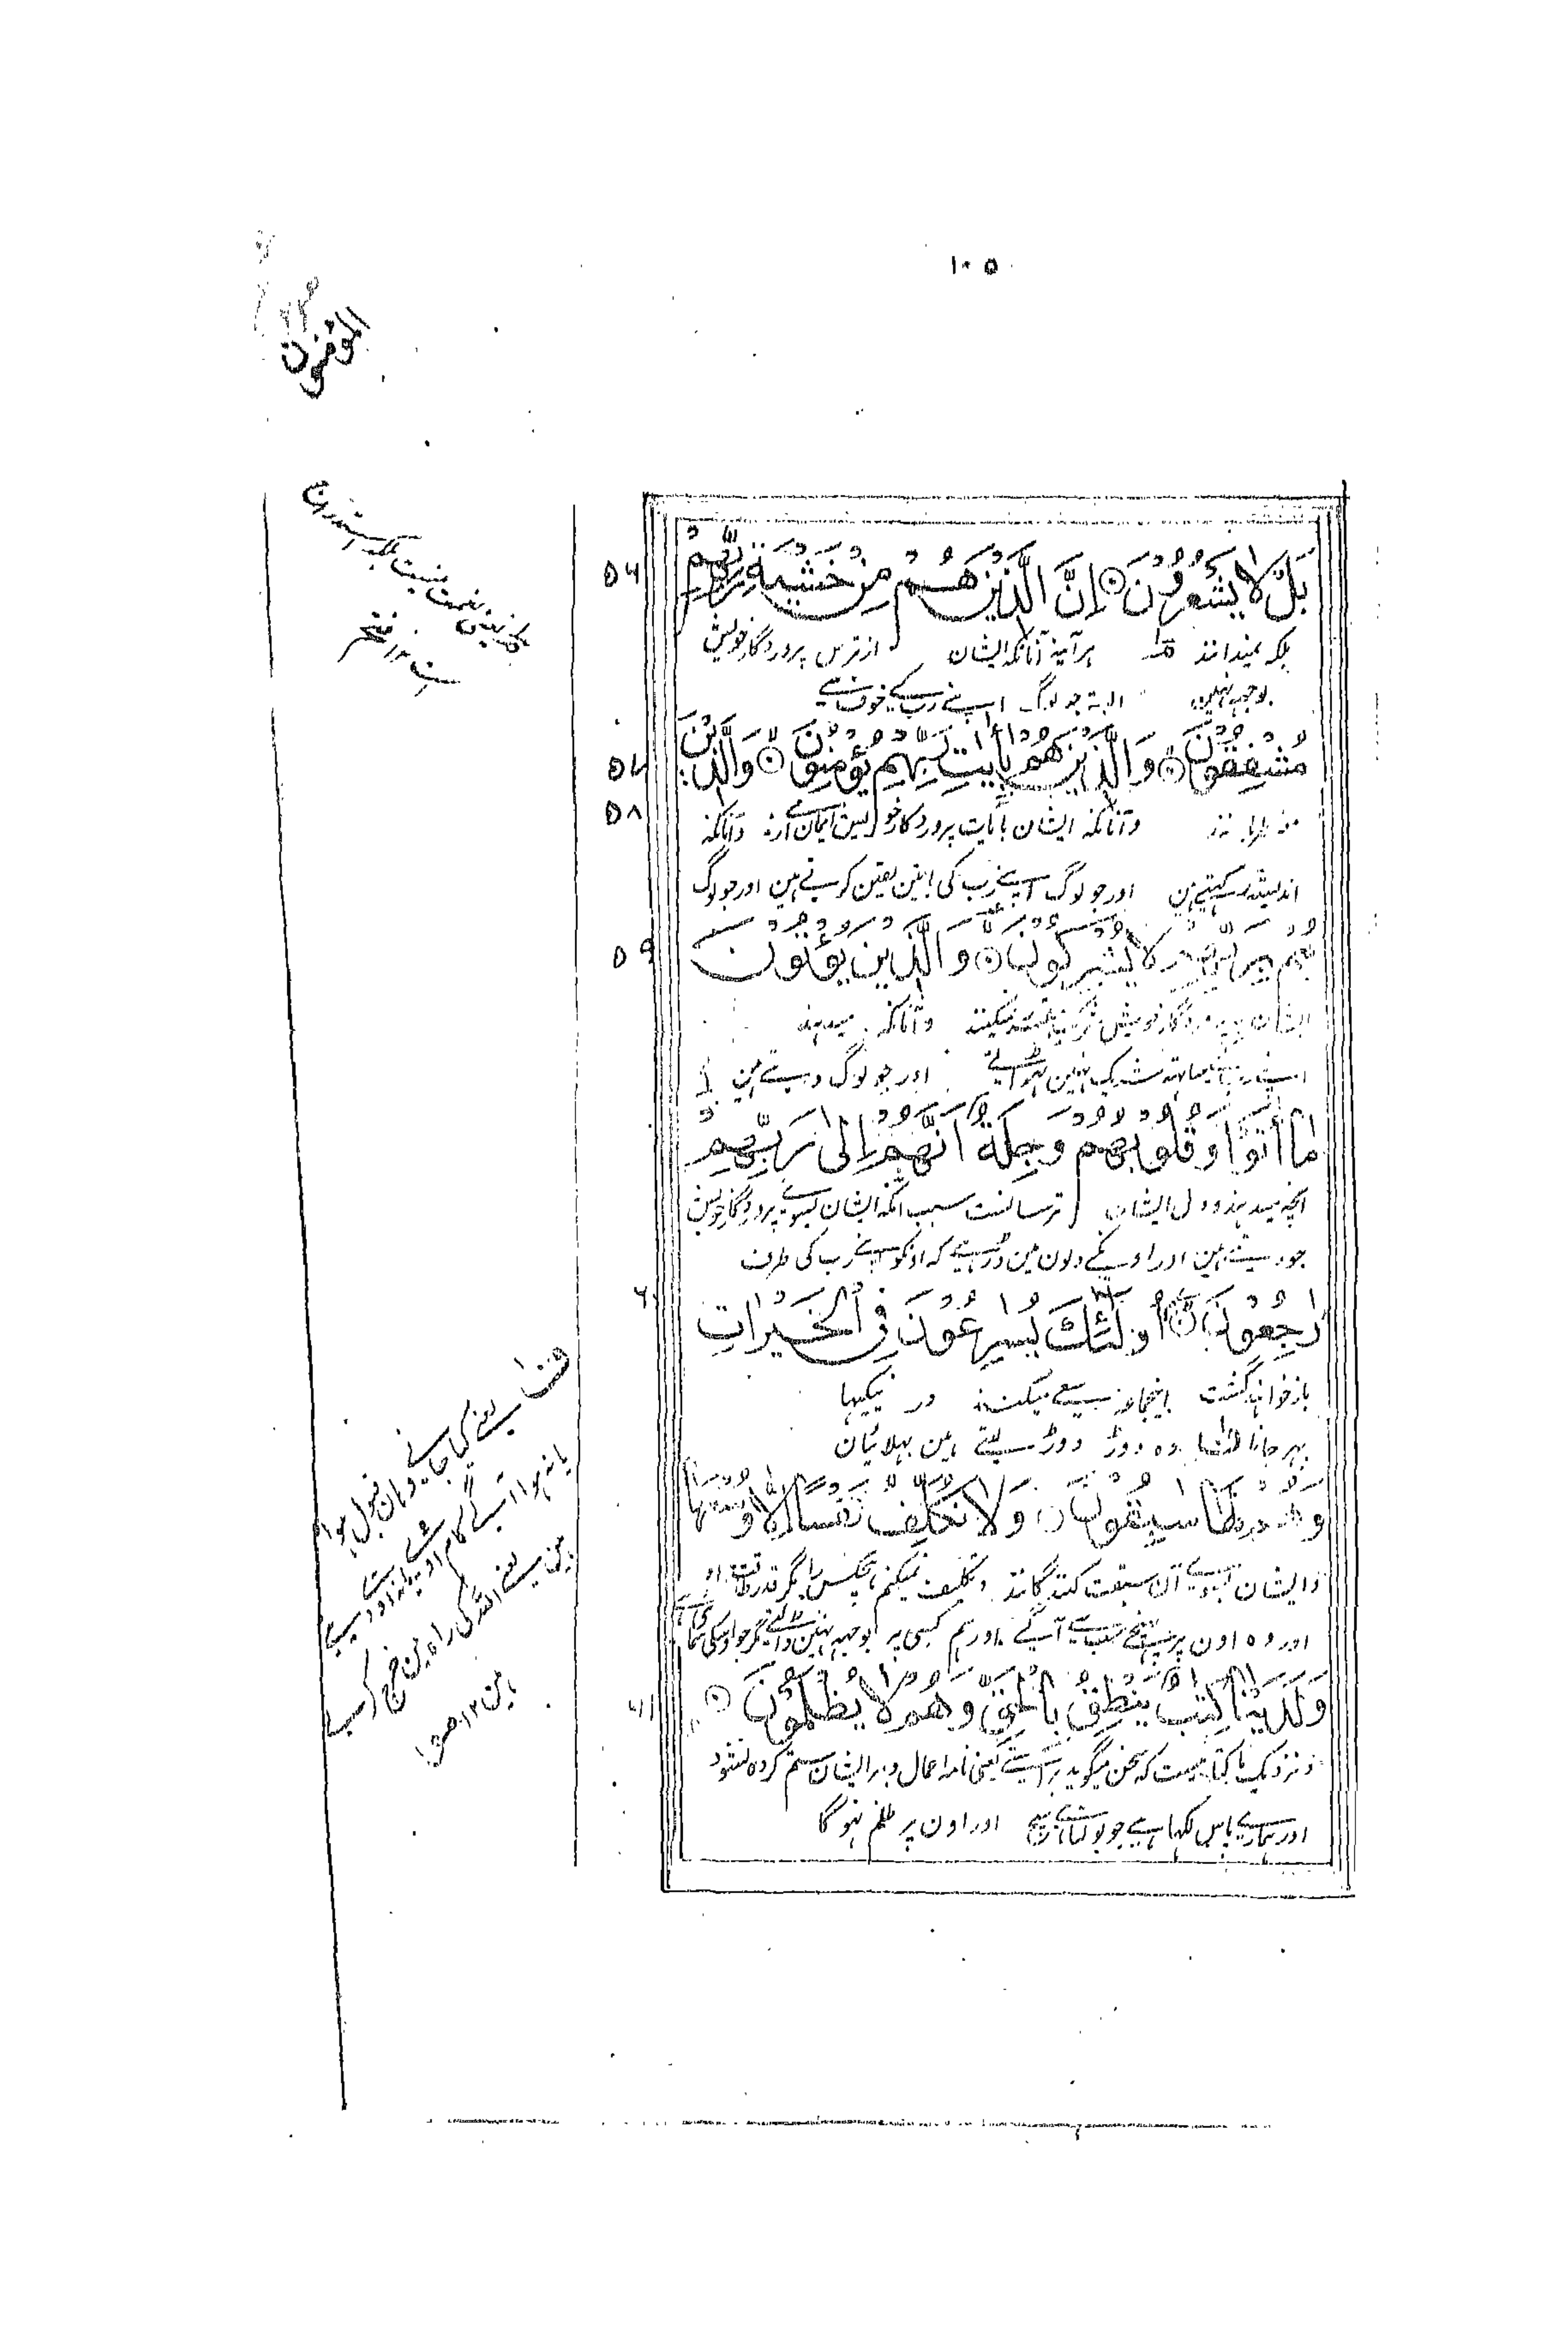 ۱۰۵
المؤمنون
بَلْ لَا يَشْعُرُوْنَ ۝ اِنَّ الَّذِيْنَ هُمْ مِنْ خَشْيَةِ رَبِّهِمْ
۵۷
بلکہ نمیدانند ہر آینہ آنانکہ ایشان از ترس پروردگار خویش
بوجھہ نہین البتہ جو لوگ اپنے رب کے خوف سے
مُشْفِقُوْنَ ۝ وَ الَّذِيْنَ هُمْ بِاٰيٰتِ رَبِّهِمْ يُؤْمِنُوْنَ ۝ وَالَّذِيْنَ
۵۸
وآنانکہ ایشان بآیات پروردگار خویش ایمان می آرند وآنانکہ
اندیشہ رکہتے ہین اور جو لوگ اپنے رب کی باتین یقین کرتے ہین اور جو لوگ
هُمْ بِرَبِّهِمْ لَا يُشْرِكُوْنَ ۝ وَ الَّذِيْنَ يُؤْتُوْنَ
۵۹
ایشان بہ پروردگار خویش شریک نمیکنند وآنانکہ میدہند
اپنے رب کے ساتہ شریک نہین اور جو لوگ دیتے ہین
مَا اٰتَوْا وَ قُلُوْبُهُمْ وَجِلَةٌ اَنَّهُمْ اِلٰى رَبِّهِمْ
آنچہ میدہند و دل ایشان ترسانست بسبب آنکہ ایشان بسوے پروردگار خویش
جو دیتے ہین اور اونکے دلون مین ڈر ہے کہ اونکو اپنے رب کی طرف
رٰجِعُوْنَ ۝ اُولٰئِكَ يُسٰرِعُوْنَ فِى الْخَيْرٰتِ
۶۰
باز خواہند گشت اینجماعہ سعے میکنند در نیکیہا
پہر جانا وہ دوڑ دوڑ لیتے ہین بہلائیان
وَهُمْ لَهَا سٰبِقُوْنَ ۝ وَ لَا نُكَلِّفُ نَفْسًا اِلَّا وُسْعَهَا
وایشان بسوے آن سبقت کنندگانند و تکلیف نمیکنم ہیچکس را مگر قدر طاقت او
اور وہ اون پر پہنچے سب سے آگے اور ہم کسی پر بوجہہ نہین ڈالتے مگر جو اوسکی سمائی ہے
وَلَدَيْنَا كِتٰبٌ يَنْطِقُ بِالْحَقِّ وَهُمْ لَا يُظْلَمُوْنَ ۝
۶۱
ونزدیک ما کتابیست کہ سخن میگوید براستے یعنی نامہ اعمال وبر ایشان ستم کردہ نشود
اور ہمارے پاس لکہا ہے جو بولتا ہے سچ اور اون پر ظلم نہوگا
یعنے کیا جانے وہان قبول ہوا
یا نہ ہوا آگے کام آوے
یعنے اللہ کی راہ مین خرچ کرتے
ہین ۱۲